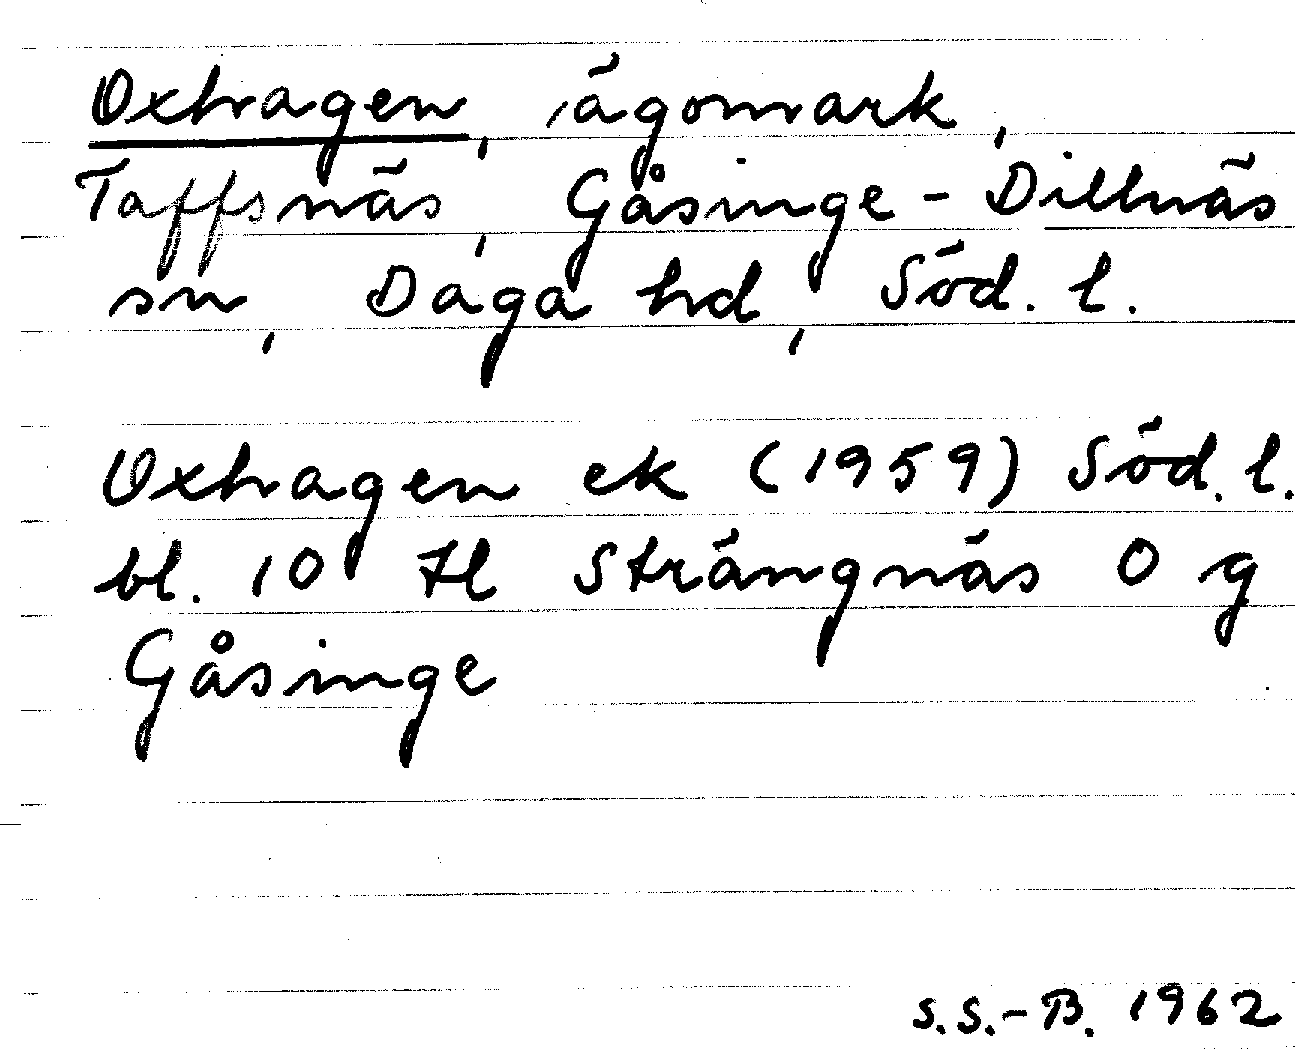 Oxhagen, ägomark,
Taffsnäs, Gåsinge-Dillnäs
sn, Daga hd, Söd. l.
Oxhagen ek (1959) Söd. l.
bl. 10 Hl Strängnäs O g
Gåsinge
S.S.-B. 1962